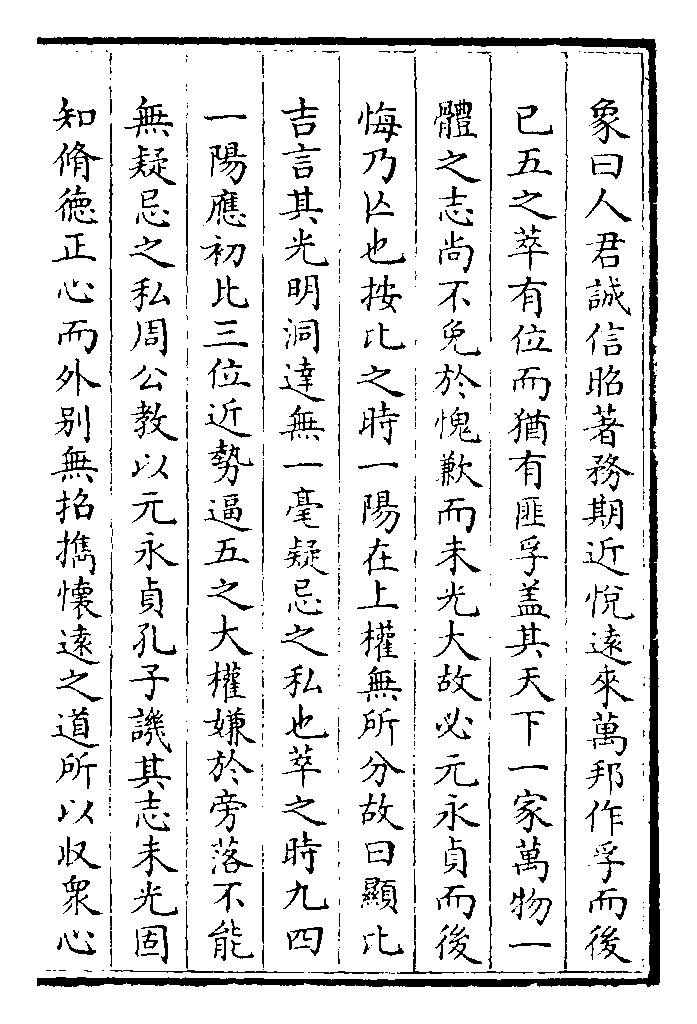 象曰人君誠信昭著務期近悅遠來萬邦作孚而後
已五之萃有位而猶有匪孚盖其天下一家萬物一
體之志尚不免於愧歉而未光大故必元永貞而後
悔乃亾也按比之時一陽在上權無所分故曰顯比
吉言其光明洞達無一毫疑忌之私也萃之時九四
一陽應初比三位近勢逼五之大權嫌於旁落不能
無疑忌之私周公教以元永貞孔子譏其志未光固
知脩德正心而外别無招擕懷遠之道所以収衆心